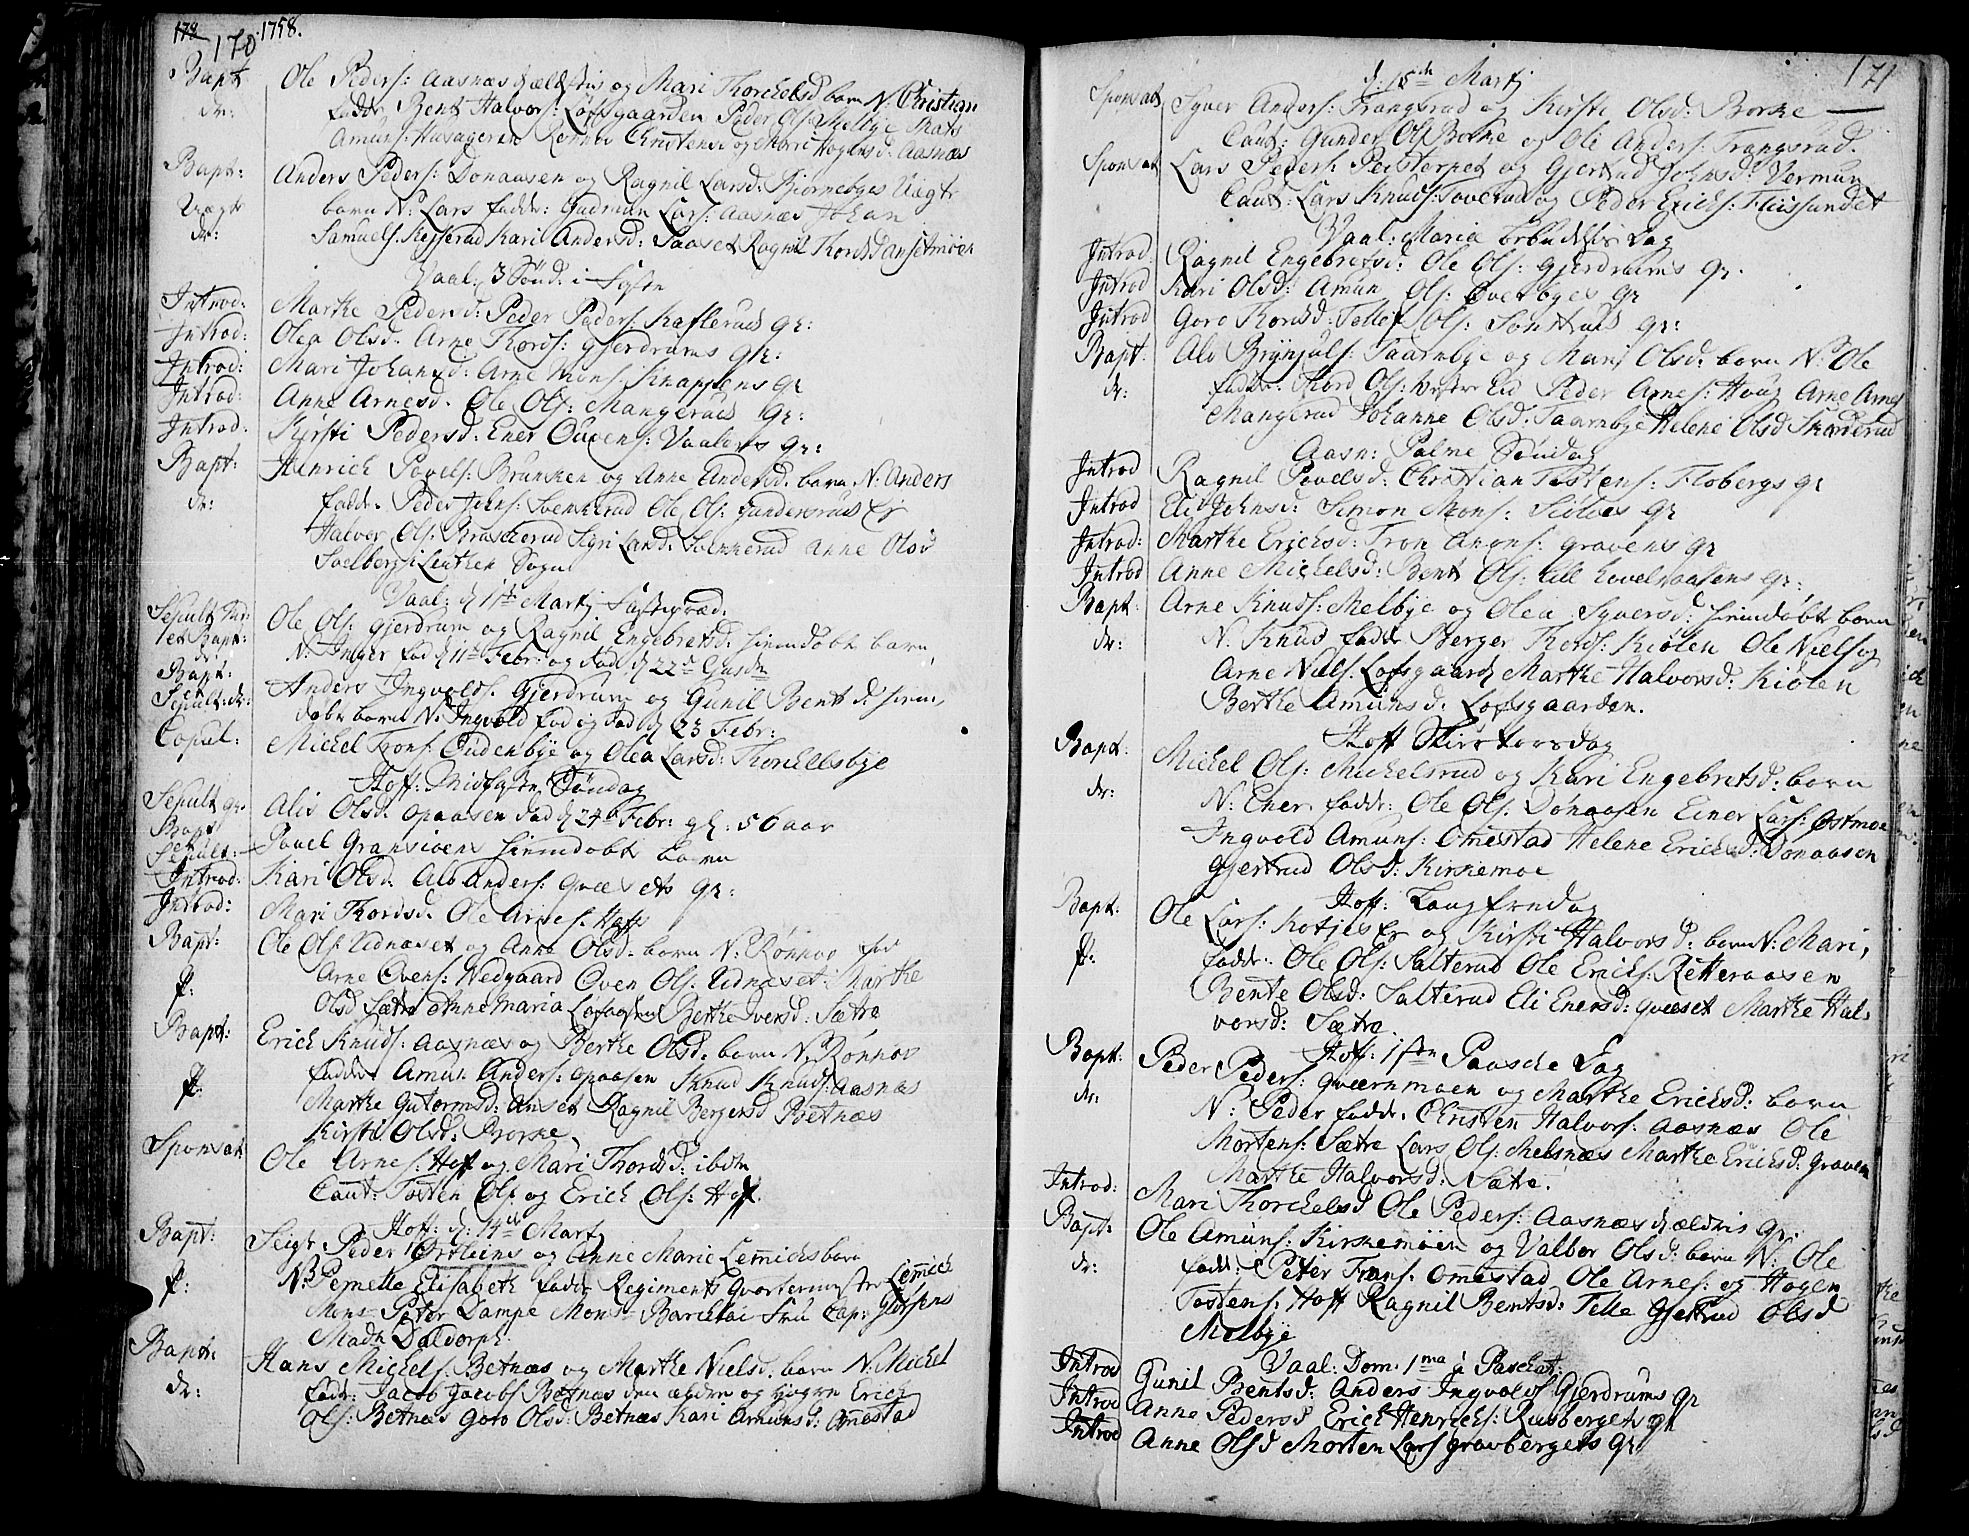 178 170 1758.
Bapt Ole Peders: Aasnæs og Mari Thorchelsd barn N: Christian
dr: fadr: Bent Halvors: Løfsgaarden Peder Ols: Melbye Mats
Amuns: Husageren Rønnov Christensd og Mari Hogensd: Aasnæs
Bapt: Anders Peders: Donaasen og Ragnil Larsd: Biørnebyes Uægte
Uægt barn N: Lars fadr: Gudmun Lars: Aasnæs Johan
dr: Samuels: Kari Andersd: Ragnil
Vaal: 3 Sønd: i Faste
Introd: Marthe Pedersd: Peder Peders: Kaflerud Qr:
Introd: Olea Olsd. Arne Thords: Gjerdrums Qr:
Introd: Mari Johansd: Arne Mons: Knappens Qr
Introd: Anne Arnesd. Ole Ols: Mangeruds Qr:
Introd. Kirsti Pedersd: Ener Ovens: Vaalers Qr:
Bapt: Henrich Povels: Brunken og Anne Andersd. barn N: Anders
dr: fadr. Peder Johns: Svenkerud Ole Ols: Gundersrud
Halvor Ols: Braskerud Sigri Larsd. Svenkerud Anne Olsd
Soelberg i Leuthen Sogn
Vaal: d 11te Martj
Sepult Ole Ols: Gjerdrum og Ragnil Engebretsd: hiemdøbt barn
et Bapt: N: Inger fød d 11te Febr: og død d 22de
Bapt: Anders Ingvolds. Gjerdrum og Gunil Bentsd. hiem,
Sepult: dr: døbt barn N: Ingvold fød og død d 23 Febr:
Copul: Michel Trons: Oudenbye og Olea Larsd: Thorchelsbye
Hoff: Midfaste Søndag
Sepult qr. Alis Olsd. Opaasen død d 24de Febr: gl: 56 aar
Bapt et Sepult: Povel Gransiøens hiemdøbt barn
Introd: Kari Olsd. Alb Anders: Qvæsets Qr:
Introd: Mari Thordsd. Ole Arnes: Hoff
Bapt: Ole Ols: Udnæset og Anne Olsd. barn N: Rønnov
p: Arne Ovens: Wedgaard Oven Ols: Udnæset Marthe
Olsd Sætre Anne Maria Berthe Iversd: Sætre
Bapt: Erich Knuds: Aasnæs og Berthe Olsd. barn N: Rønnov
p: fadr: Amun Anders: Opaasen Knud Knuds: Aasnæs
Marthe Gutormsd: Ragnil Bergersd Betnæs
Kirsti Olsd: Borke
Sponsat Ole Arnes: Hoff og Mari Thordsd: ibdm
Caut: Tosten Ols: og Erich Ols: Hoff.
Hoff: d: 14de Martj
Bapt: Seigr Peder Ortleins og Anne Marie Lemichs barn
p: N: Pernelle Elisabeth fadr Regiments Qvartermester Lemich
Mons: Peter Dampe Mons: Barclai Fru Cap:
Madm Daldorph
Bapt: Hans Michels: Betnæs og Marthe Nielsd. barn N: Michel
dr: fadr: Jacob Jacobs: Betnæs den ældre og yngre Erich
Ols: Betnæs Goro Olsd: Betnæs Kari Amunsd: Omestad
171
d. 15de Martj
Sponsat Syver Anders: Frangsrud og Kirsti Olsd: Borke
Caut: Gunder Ols: Borke og Ole Anders: Frangsrud.
Sponsat Lars Peders: Peisterpet og Gjertrud Johnsd: Vermun
Caut: Lars Knuds: Toverud og Peder Erichs: Fliissundet
Vaal: Maria bebudelses Dag
Introd: Ragnil Engebretsd: Ole Ols: Gjerdrums Qr.
Introd Kari Olsd: Amun Ols: Overbyes Qr
Introd Goro Thordsd: Tellef Ols: Sønsteruds Qr:
Bapt: Alv Brynjuls: Taarnbye og Mari Olsd: barn N: Ole
dr: fadr: Thord Ols: Peder Arnes: Houg Arne Arnes
Mangerud Johanne Olsd. Taarnbye Helene Olsd Skarderud
Aasn: Palme Søndag
Introd Ragnil Povelsd: Christian Tostens: Flobergs Qr
Introd Eli Johnsd: Simon Mons: Qr
Introd: Marthe Erichsd: Tron Gravens Qr
Introd Anne Michelsd: Bent Ols: Lill Qr:
Bapt: Arne Knuds: Melbye og Olea Syversd: hiemdøbt barn
dr: N: Knud fadr: Berger Thords: Kiølen Ole Niels: og
Arne Niels: Løfsgaard Marthe Halvorsd: Kiølen
Berthe Amunsd: Løfsgaarden.
Hoff Skirs torsdag
Bapt: Michel Ols: Michelsrud og Kari Engebretsd: barn
dr: N: Ener fadr: Ole Ols: Donaasen Einer Lars: Østmoe
Ingvold Amuns: Omestad Helene Erichsd: Donaasen
Gjertrud Olsd: Kirkemoe
Hoff: Langfredag
Bapt. Ole Lars: og Kirsti Halvorsd: barn N: Mari,
p: fadr: Ole Ols: Salterud Ole Erichs: Retteraasen
Bente Olsd: Salterud Eli Enersd: Qvæset Marthe Hal,
vorsd: Sætre.
Hoff: 1ste Paaske Dag
Bapt: Peder Peders: Qværnmoen og Marthe Erichsd: barn
dr: N: Peder fadr: Christen Halvors: Aasnæs Ole
Mortens: Sætre Lars Ols: Melsnæs Marthe Erichsd: Graven
Marthe Halvorsd: Sætre.
Introd: Mari Thorchelsd Ole Peders: Aasnæs Qr:
Bapt: Ole Amuns: Kirkemoen og Valbor Olsd: barn N: Ole
dr: fadr: Peter Frans: Omestad Ole Arnes: og Hogen
Tostens: Hoff Ragnil Bentsd: Telle Gjertrud Olsd
Melbye
Vaal: Dom: 1ma à Paschat:
Introd Gunil Bentsd: Anders Ingvolds: Gjerdrums Qr
Introd Anne Pedersd Erich Henrichs: Rusbergets Qr
Introd Anne Olsd Morten Lars: Gravbergets Qr